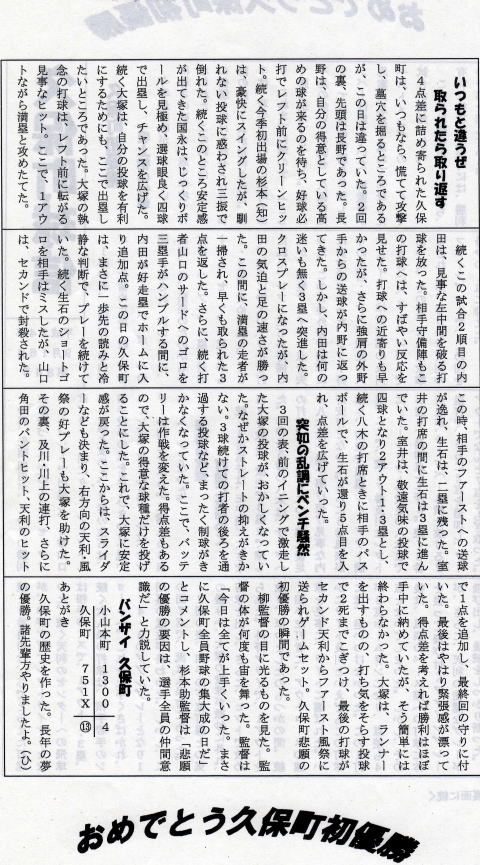 いつもと違うぜ
取られたら取り返す
４点差に詰め寄られた久保
町は、いつもなら、慌てて攻撃
し、墓穴を掘るところである
が、この日は違っていた。２回
の裏、先頭は長野であった。長
野は、自分の得意としている高
めの球が来るのを待ち、好球必
打でレフト前にクリーンヒッ
ト。続く今季初出場の杉本（知）
は、豪快にスイングしたが、馴
れない投球に惑わされ三振で
倒れた。続くこのところ安定感
が出てきた国永は、じっくりボ
ールを見極め、選球眼良く四球
で出塁し、チャンスを広げた。
続く大塚は、自分の投球を有利
にするためにも、ここで出塁し
たいところであった。大塚の執
念の打球は、レフト前に転がる
見事なヒット。ここで、１アウ
トながら満塁と攻めたてた。
続く、この試合２順目の内
田は、見事な左中間を破る打
球を放った。相手守備陣もこ
の打球へは、すばやい反応を
見せた。打球への近寄りも早
かったが、さらに強肩の外野
手からの送球が内野に返っ
てきた。しかし、内田は何の
迷いも無く３塁へ突進した。
クロスプレーになったが、内
田の気迫と足の速さが勝っ
た。この間に、満塁の走者が
一掃され、早くも取られた３
点を返した。さらに、続く打
者山口のサードへのゴロを
三塁手がハンブルする間に、
内田が好走塁でホームに入
り追加点。この日の久保町
は、まさに一歩先の読みと冷
静な判断で、プレーを続けて
いた。続く生石のショートゴ
ロを相手はミスしたが、山口
は、セカンドで封殺された。
この時、相手のファーストへの送球
が逸れ、生石は、二塁に残った。室
井の打席の間に生石は３塁に進ん
でいた。室井は、敬遠気味の投球で
四球となり２アウト１・３塁とし、
続く八木の打席ときに相手のパス
ボールで、生石が還り５点目を入
れ、点差を広げていった。
突如の乱調にベンチ騒然
３回の表、前のイニングで激走し
た大塚の投球が、おかしくなってい
た。なぜかストレートの抑えがきか
ない。３球続けての打者の後ろを通
過する投球など、まったく制球がき
かなくなっていた。ここで、バッテ
リーは作戦を変えた。得点差もある
ので、大塚の得意な球種だけを投げ
ることにした。これで、大塚に安定
感が戻った。ここからは、スライダ
ーなども決まり、右方向の天利・風
祭の好プレーも大塚を助けた。
その裏、及川・川上の連打、さらに
角田のバントヒット、天利のヒット
で１点を追加し、最終回の守りに付
いた。最後はやはり緊張感が漂って
いた。得点差を考えれば勝利はほぼ
手中に納めていたが、そう簡単には
終わらなかった。大塚は、ランナー
を出すものの、打ち気をそらす投球
で２死までこぎつけ、最後の打球が
セカンド天利からファースト風祭に
送られゲームセット。久保町悲願の
初優勝の瞬間であった。
柳監督の目に光るものを見た。監
督の体が何度も宙を舞った。監督は
「今日は全てが上手くいった。まさ
に久保町全員野球の集大成の日だ」
とコメントし、杉本助監督は「悲願
の優勝の要因は、選手全員の仲間意
識だ」と力説していた。
バンザイ　久保町
小山本町　１３００　４
久保町　７５１Ｘ　⑬
あとがき
久保町の歴史を作った。長年の夢
の優勝。諸先輩方やりましたよ。（ひ）
おめでとう久保町初優勝